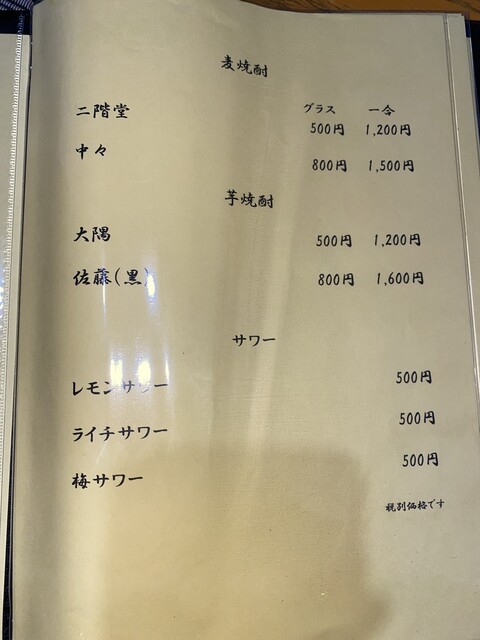 麦焼酎
グラス 一合
二階堂 500円 1,200円
中々 800円 1,500円
芋焼酎
大隅 500円 1,200円
佐藤(黒) 800円 1,600円
サワー
レモンサワー 500円
ライチサワー 500円
梅サワー 500円
税別価格です